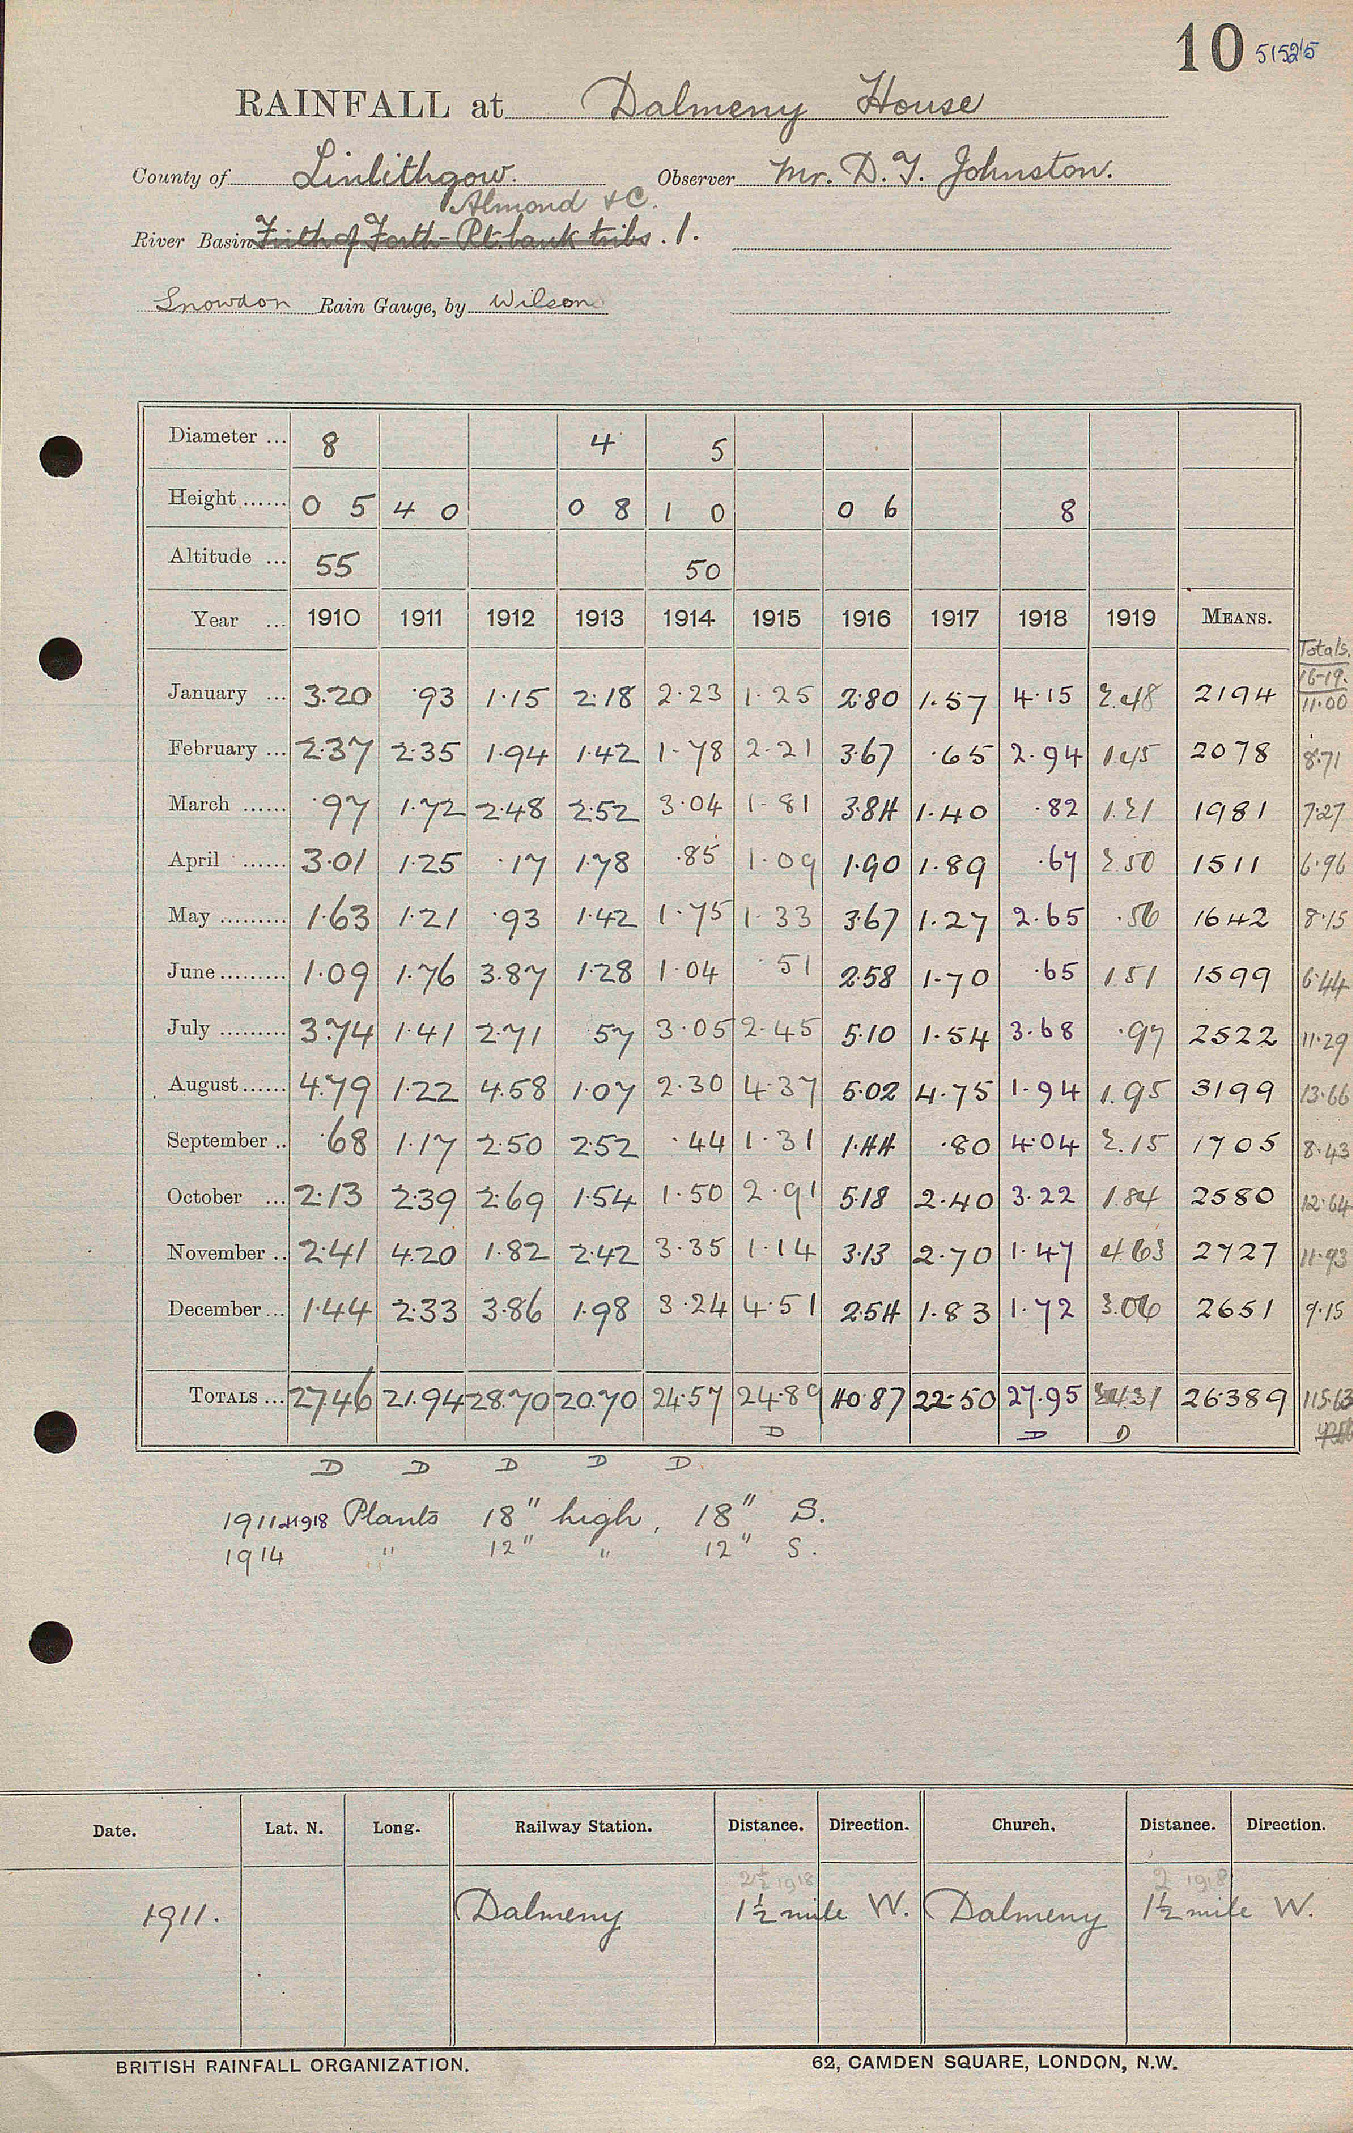 10 51525
RAINFALL at Dalmeny House
County of Linlithgow. Observer Mr. D. T. Johnston.
Almond &C.
River Basin Firth of Forth - Rt. bank tribs. 1.
Snowdon Rain Gauge, by Wilson
Diameter ... 8 4 5
Height ...... 0 5 4 0 0 8 1 0 0 6 8
Altitude ... 55 50
Year ... 1910 1911 1912 1913 1914 1915 1916 1917 1918 1919 MEANS.
Totals.
16-19.
January ... 3.20 .93 1.15 2.18 2.23 1.25 2.80 1.57 4.15 2.48 2194 11.00
February ... 2.37 2.35 1.94 1.42 1.78 2.21 3.67 .65 2.94 1.45 2078 8.71
March ...... .97 1.72 2.48 2.52 3.04 1.81 3.84 1.40 .82 1.21 1981 7.27
April ...... 3.01 1.25 .17 1.78 .85 1.09 1.90 1.89 .67 2.50 1511 6.96
May ......... 1.63 1.21 .93 1.42 1.75 1.33 3.67 1.27 2.65 .56 1642 8.15
June ......... 1.09 1.76 3.87 1.28 1.04 .51 2.58 1.70 .65 1.51 1599 6.44
July ......... 3.74 1.41 2.71 57 3.05 2.45 5.10 1.54 3.68 .97 2522 11.29
August ...... 4.79 1.22 4.58 1.07 2.30 4.37 5.02 4.75 1.94 1.95 3199 13.66
September .. .68 1.17 2.50 2.52 .44 1.31 1.44 .80 4.04 2.15 1705 8.43
October ... 2.13 2.39 2.69 1.54 1.50 2.91 5.18 2.40 3.22 1.84 2580 12.64
November .. 2.41 4.20 1.82 2.42 3.35 1.14 3.13 2.70 1.47 4.63 2727 11.93
December ... 1.44 2.33 3.86 1.98 3.24 4.51 2.54 1.83 1.72 3.06 2651 9.15
TOTALS ... 27.46 21.94 28.70 20.70 24.57 24.89 40.87 22.50 27.95 24.31 26389 115.63
D D D
D D D D D
1911 & 1918 Plants 18" high, 18" S.
1914 " 12" " 12" S.
Date. Lat. N. Long. Railway Station. Distance. Direction. Church. Distance. Direction.
2½ 1918 2 1918
1911. Dalmeny 1½ mile W. Dalmeny 1½ mile W.
BRITISH RAINFALL ORGANIZATION. 62, CAMDEN SQUARE, LONDON, N.W.